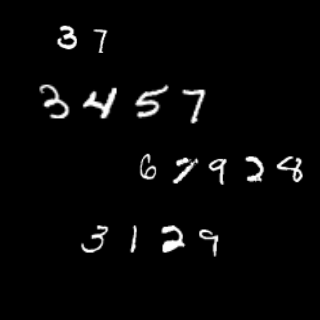 3 7
3 4 5 7
6 7 9 2 8
3 1 2 9